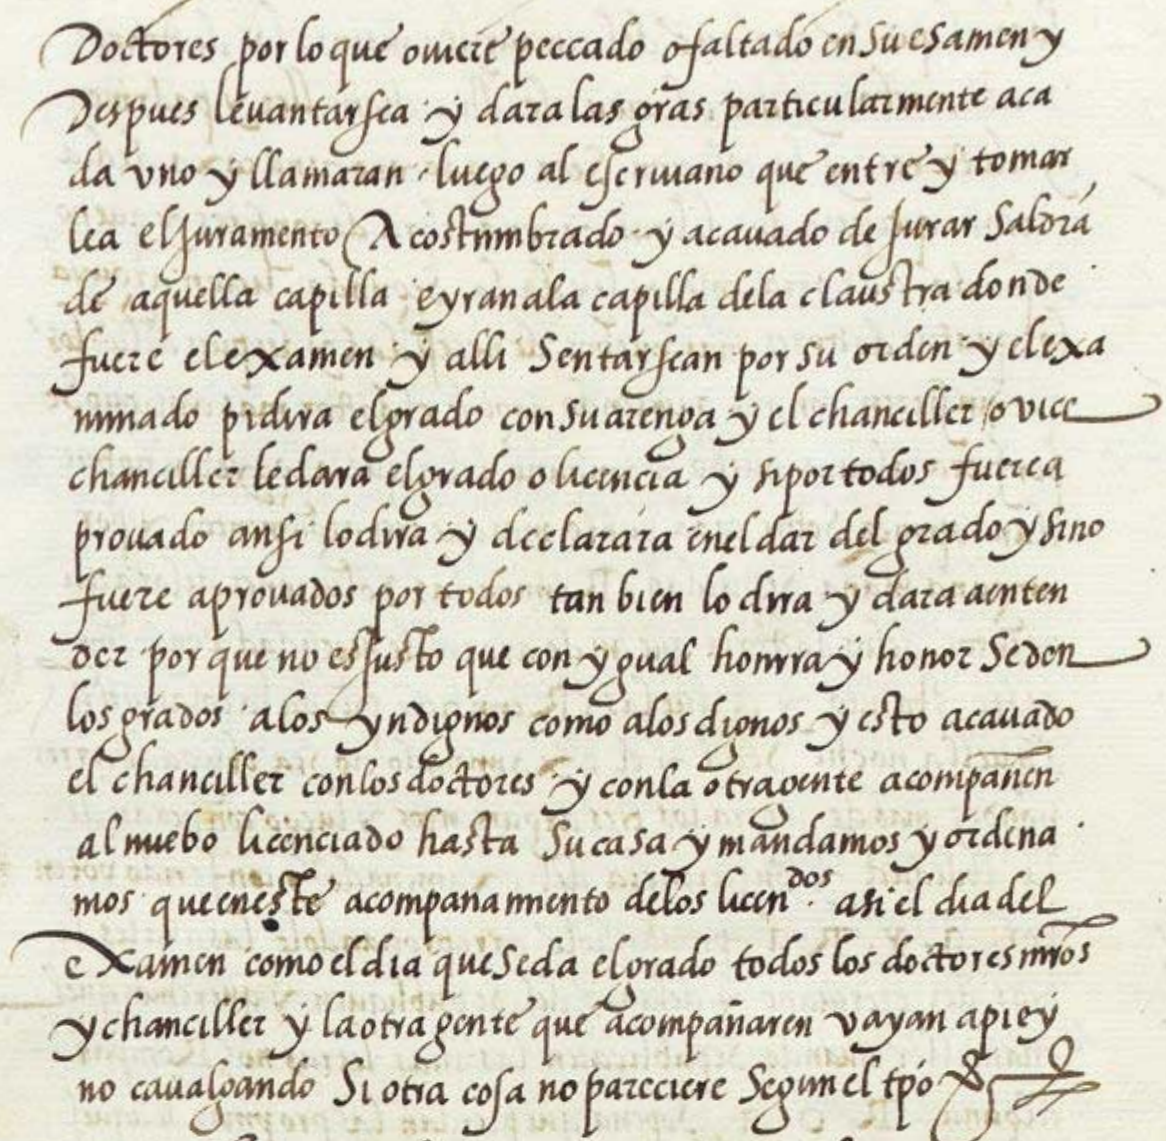 Doctores por lo que ouiere peccado o faltado en su esamen y
Despues leuantarsea y dara las gras particularmente aca
da vno y llamaran luego al escriuano que entre y tomar
lea el Juramento Acostumbrado y acauado de Jurar Saldrá
de aquella capilla e yran ala capilla dela claustra donde
fuere el examen y alli Sentarsean por su orden y el exa
minado pidira el grado con su arenga y el chanciller o vice
chanciller le dara el grado o licencia y si por todos fuere a
prouado ansi lo dira y declarara en el dar del grado y sino
fuere aprouados por todos tan bien lo dira y dara a enten
der por que no es Justo que con ygual honrra y honor Se den
los grados alos yndignos como alos dignos y esto acauado
el chanciller con los doctores y con la otra gente acompañen
al nuebo licenciado hasta Su casa y mandamos y ordena
mos que en este acompañamiento delos licendos. asi el dia del
eXamen como el dia que Se da el grado todos los doctores mros
y chanciller y la otra gente que acompañaren vayan a pie y
no caualgando Si otra cosa no pareciere Segun el tpo